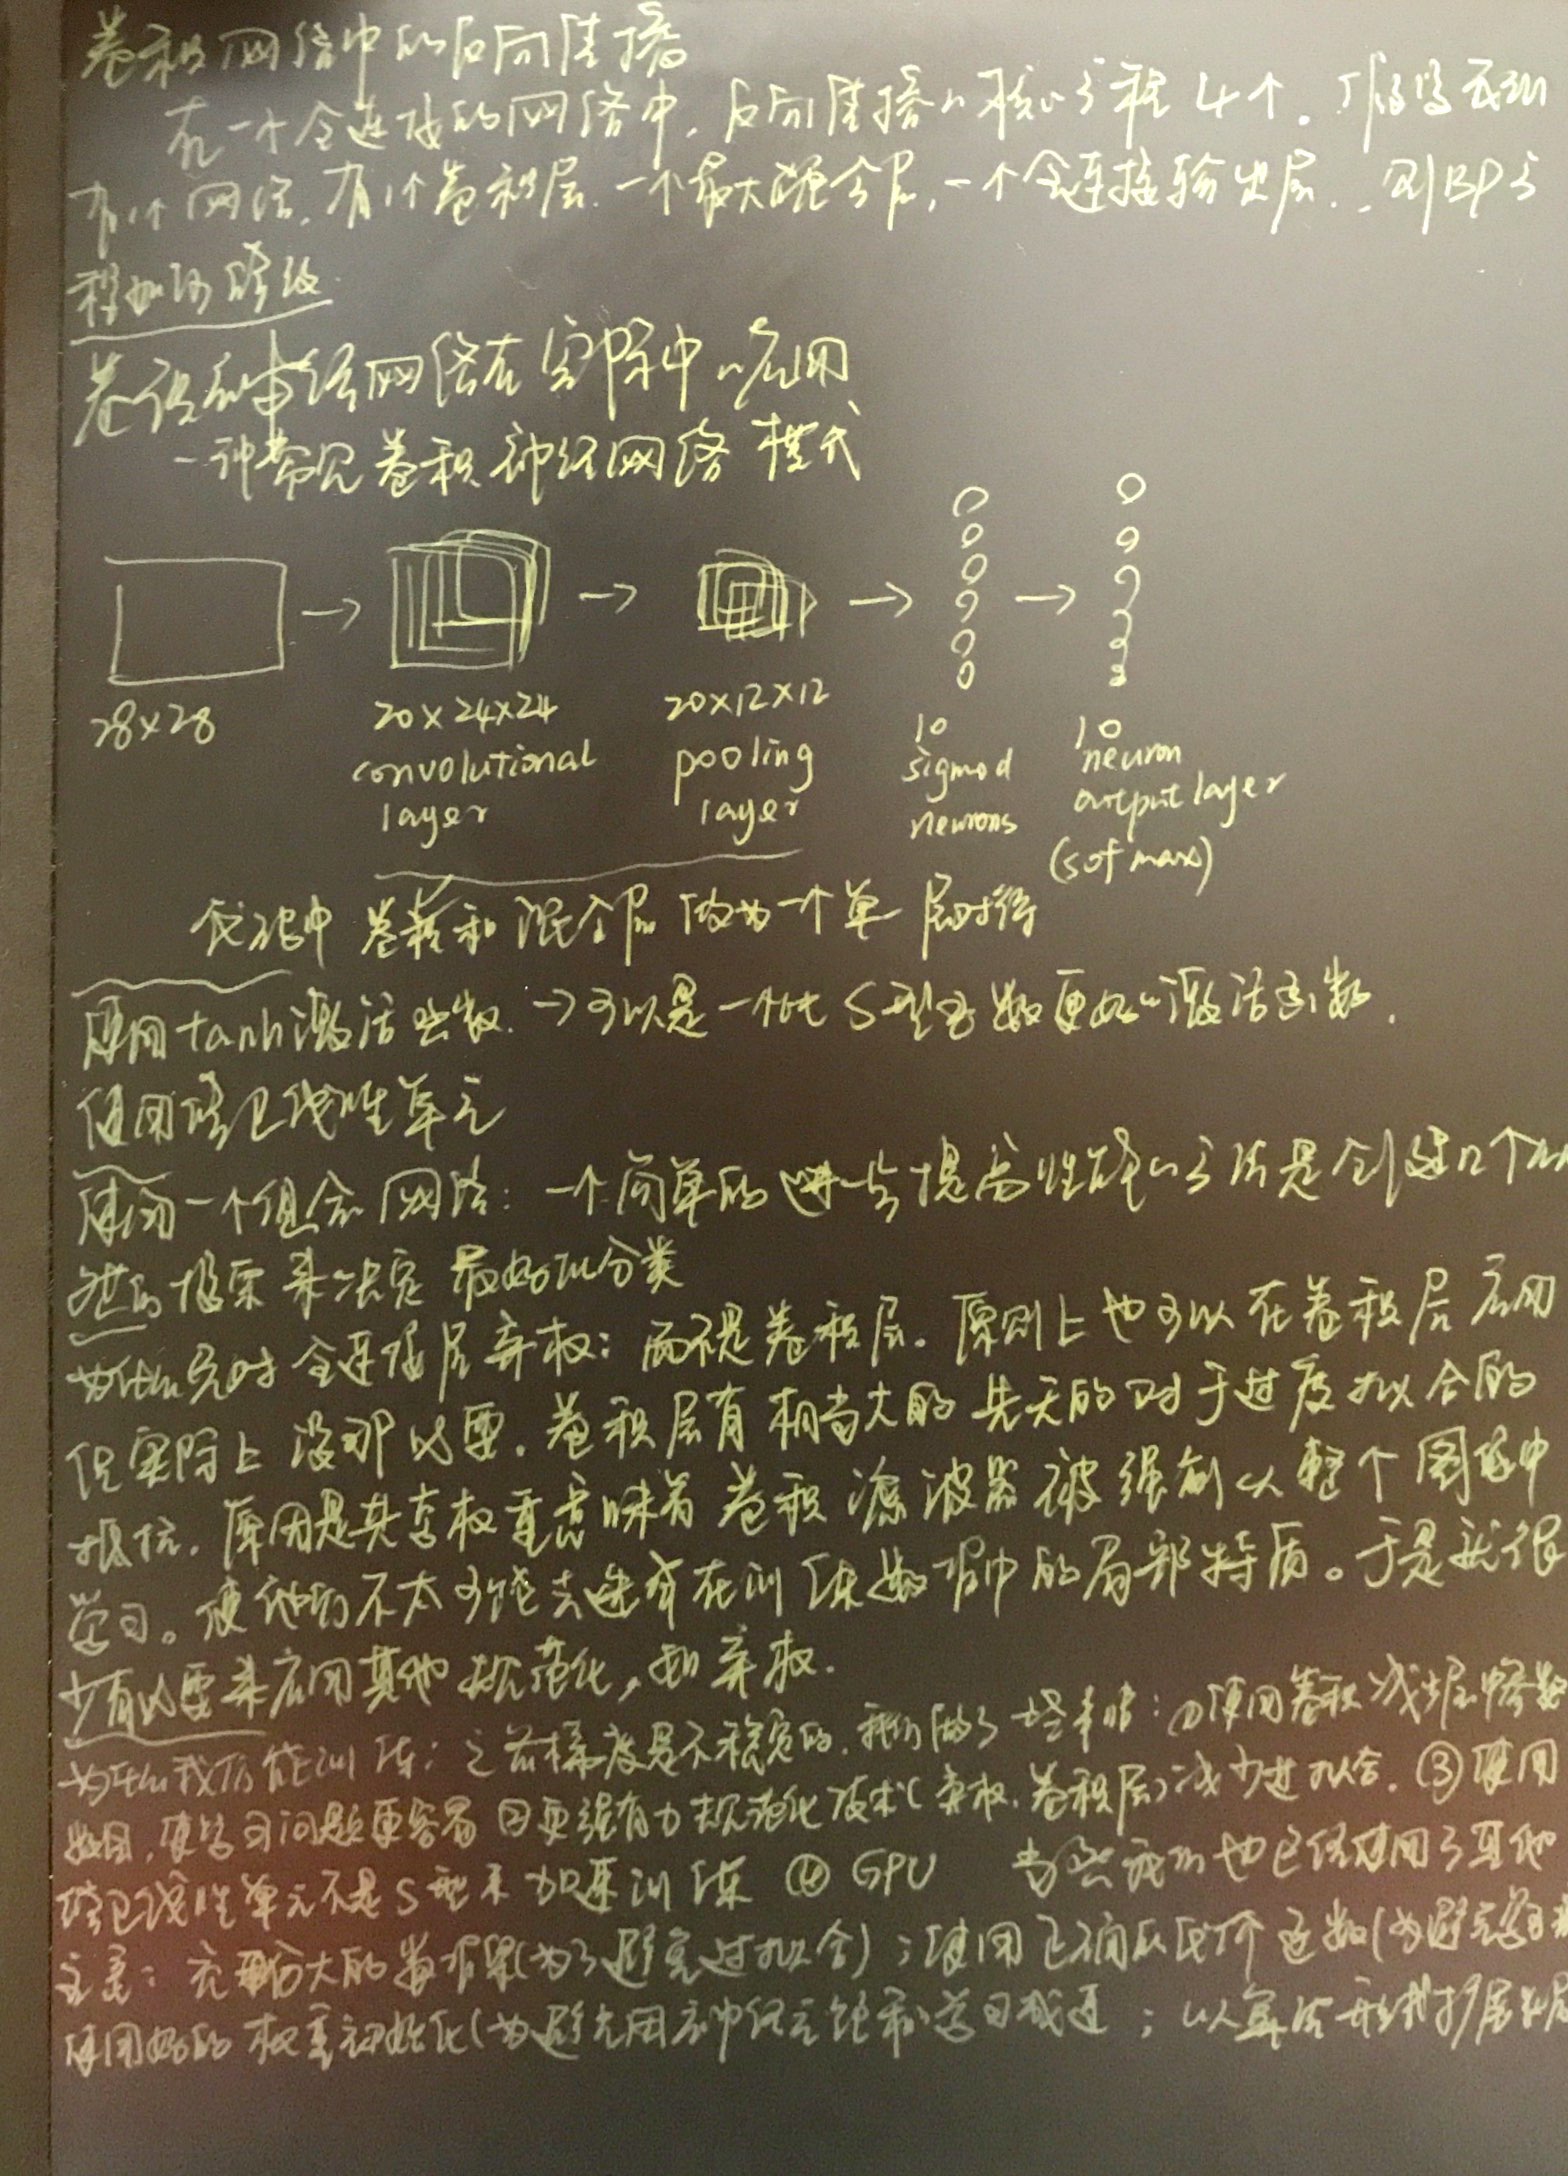 卷积网络中的反向传播
在一个全连接的网络中，反向传播的核心方程4个。假设我们
有1个网络，有1个卷积层，一个最大混合层，一个全连接输出层，则BP方
程如何修改
卷积神经网络在实际中的应用
一种常见卷积神经网络模式
28×28
20×24×24
convolutional
layer
20×12×12
pooling
layer
10
sigmod
neurons
10
neuron
output layer
(sofmax)
代码中 卷积和混合层做为一个单层对待
使用tanh激活函数 → 可以是一个比S型函数更好的激活函数.
使用修正线性单元
使用一个组合网络：一个简单的进一步提高性能的方法是创建几个
投票来决定最好的分类
为什么只对全连接层弃权：而不是卷积层。原则上也可以在卷积层应用
但实际上没那必要。卷积层有相当大的先天的对于过度拟合的
抵抗。原因是共享权重意味着卷积滤波器被强制从整个图像中
学习。使他们不太可能去选择在训练数据中的局部特质。于是就很
少有必要来应用其他规范化，如弃权.
为什么我们能训练：之前梯度是不稳定的，我们做了一些事情：①使用卷积减少层中参数
数目，使学习问题更容易 ②更强有力规范化技术(弃权、卷积层)减少过拟合. ③使用
修正线性单元不是S型来加速训练 ④ GPU 当然我们也已经使用了其他
主意：充分大的数据集(为了避免过拟合)；使用正确的代价函数(为避免学习
使用好的权重初始化(为避免因神经元饱和学习减速；以算法形式扩展